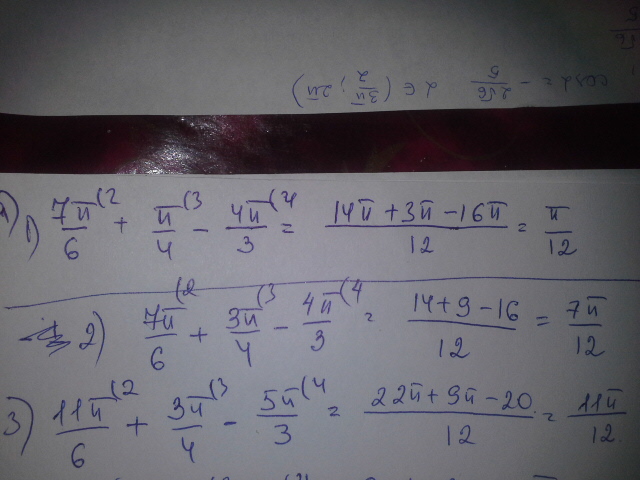 cos α = - 2√6/5 α ∈ (3π/2; 2π)
1) 7π/6 (2 + π/4 (3 - 4π/3 (4 = 14π + 3π - 16π/12 = π/12
2) 7π/6 (2 + 3π/4 (3 - 4π/3 (4 = 14 + 9 - 16/12 = 7π/12
3) 11π/6 (2 + 3π/4 (3 - 5π/3 (4 = 22π + 9π - 20/12 = 11π/12